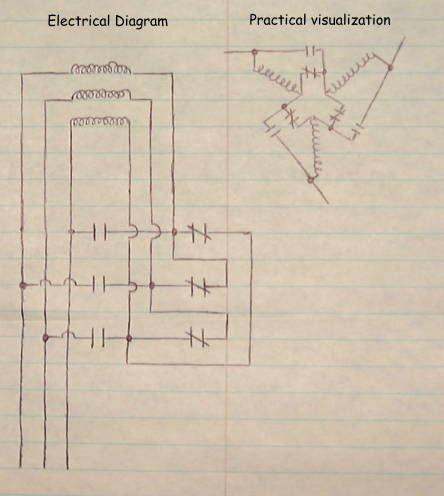 Electrical Diagram
Practical visualization